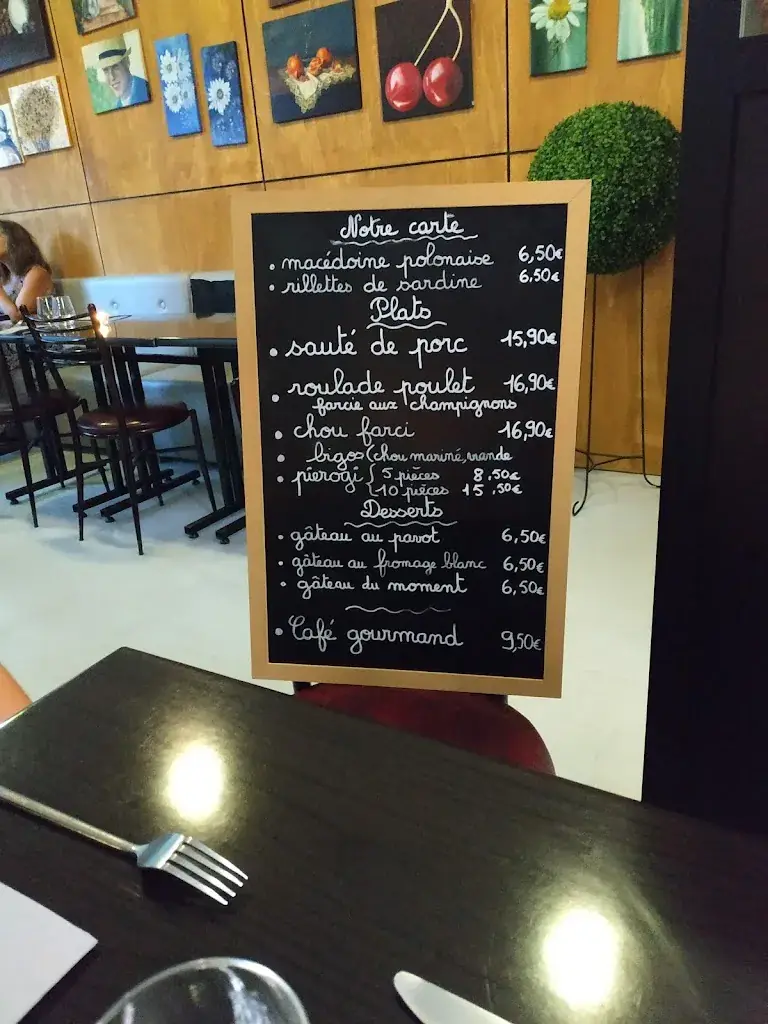 Notre carte
• macédoine polonaise 6,50€
• rillettes de sardine 6,50€
Plats
• sauté de porc 15,90€
• roulade poulet 16,90€
farcie aux champignons
• chou farci 16,90€
• bigos (chou mariné, viande
• pierogi { 5 pièces 8,50€
10 pièces 15,50€
Desserts
• gâteau au pavot 6,50€
• gâteau au fromage blanc 6,50€
• gâteau du moment 6,50€
• Café gourmand 9,50€